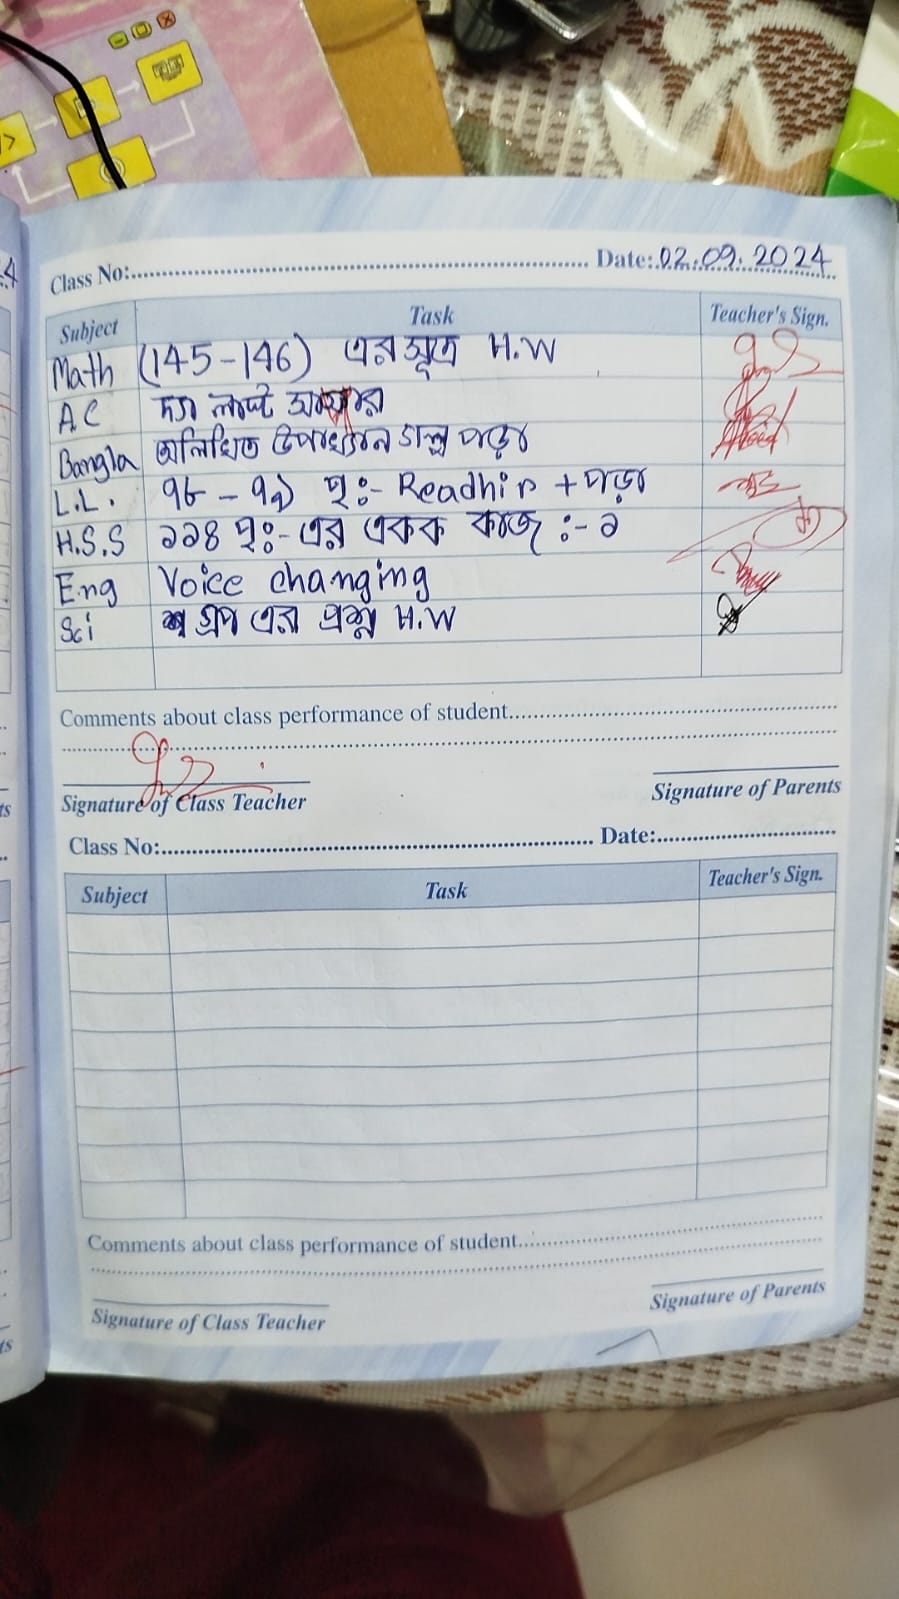 Class No:.......... Date: 02.09.2024
Subject Task Teacher's Sign.
Math (145-146) এর সূত্র H.W
AC দ্যা লাস্ট
Bangla অলিখিত উপাখ্যান গল্প পড়া
L.L. ৭৮ - ৭৯ পৃঃ- Readhin + পড়া
H.S.S ১১৪ পৃঃ- এর একক কাজ :- ১
Eng Voice changing
Sci গ্রুপ এর প্রশ্ন H.W
Comments about class performance of student..........
Signature of Class Teacher Signature of Parents
Class No:.......... Date:..........
Subject Task Teacher's Sign.
Comments about class performance of student..........
Signature of Class Teacher Signature of Parents